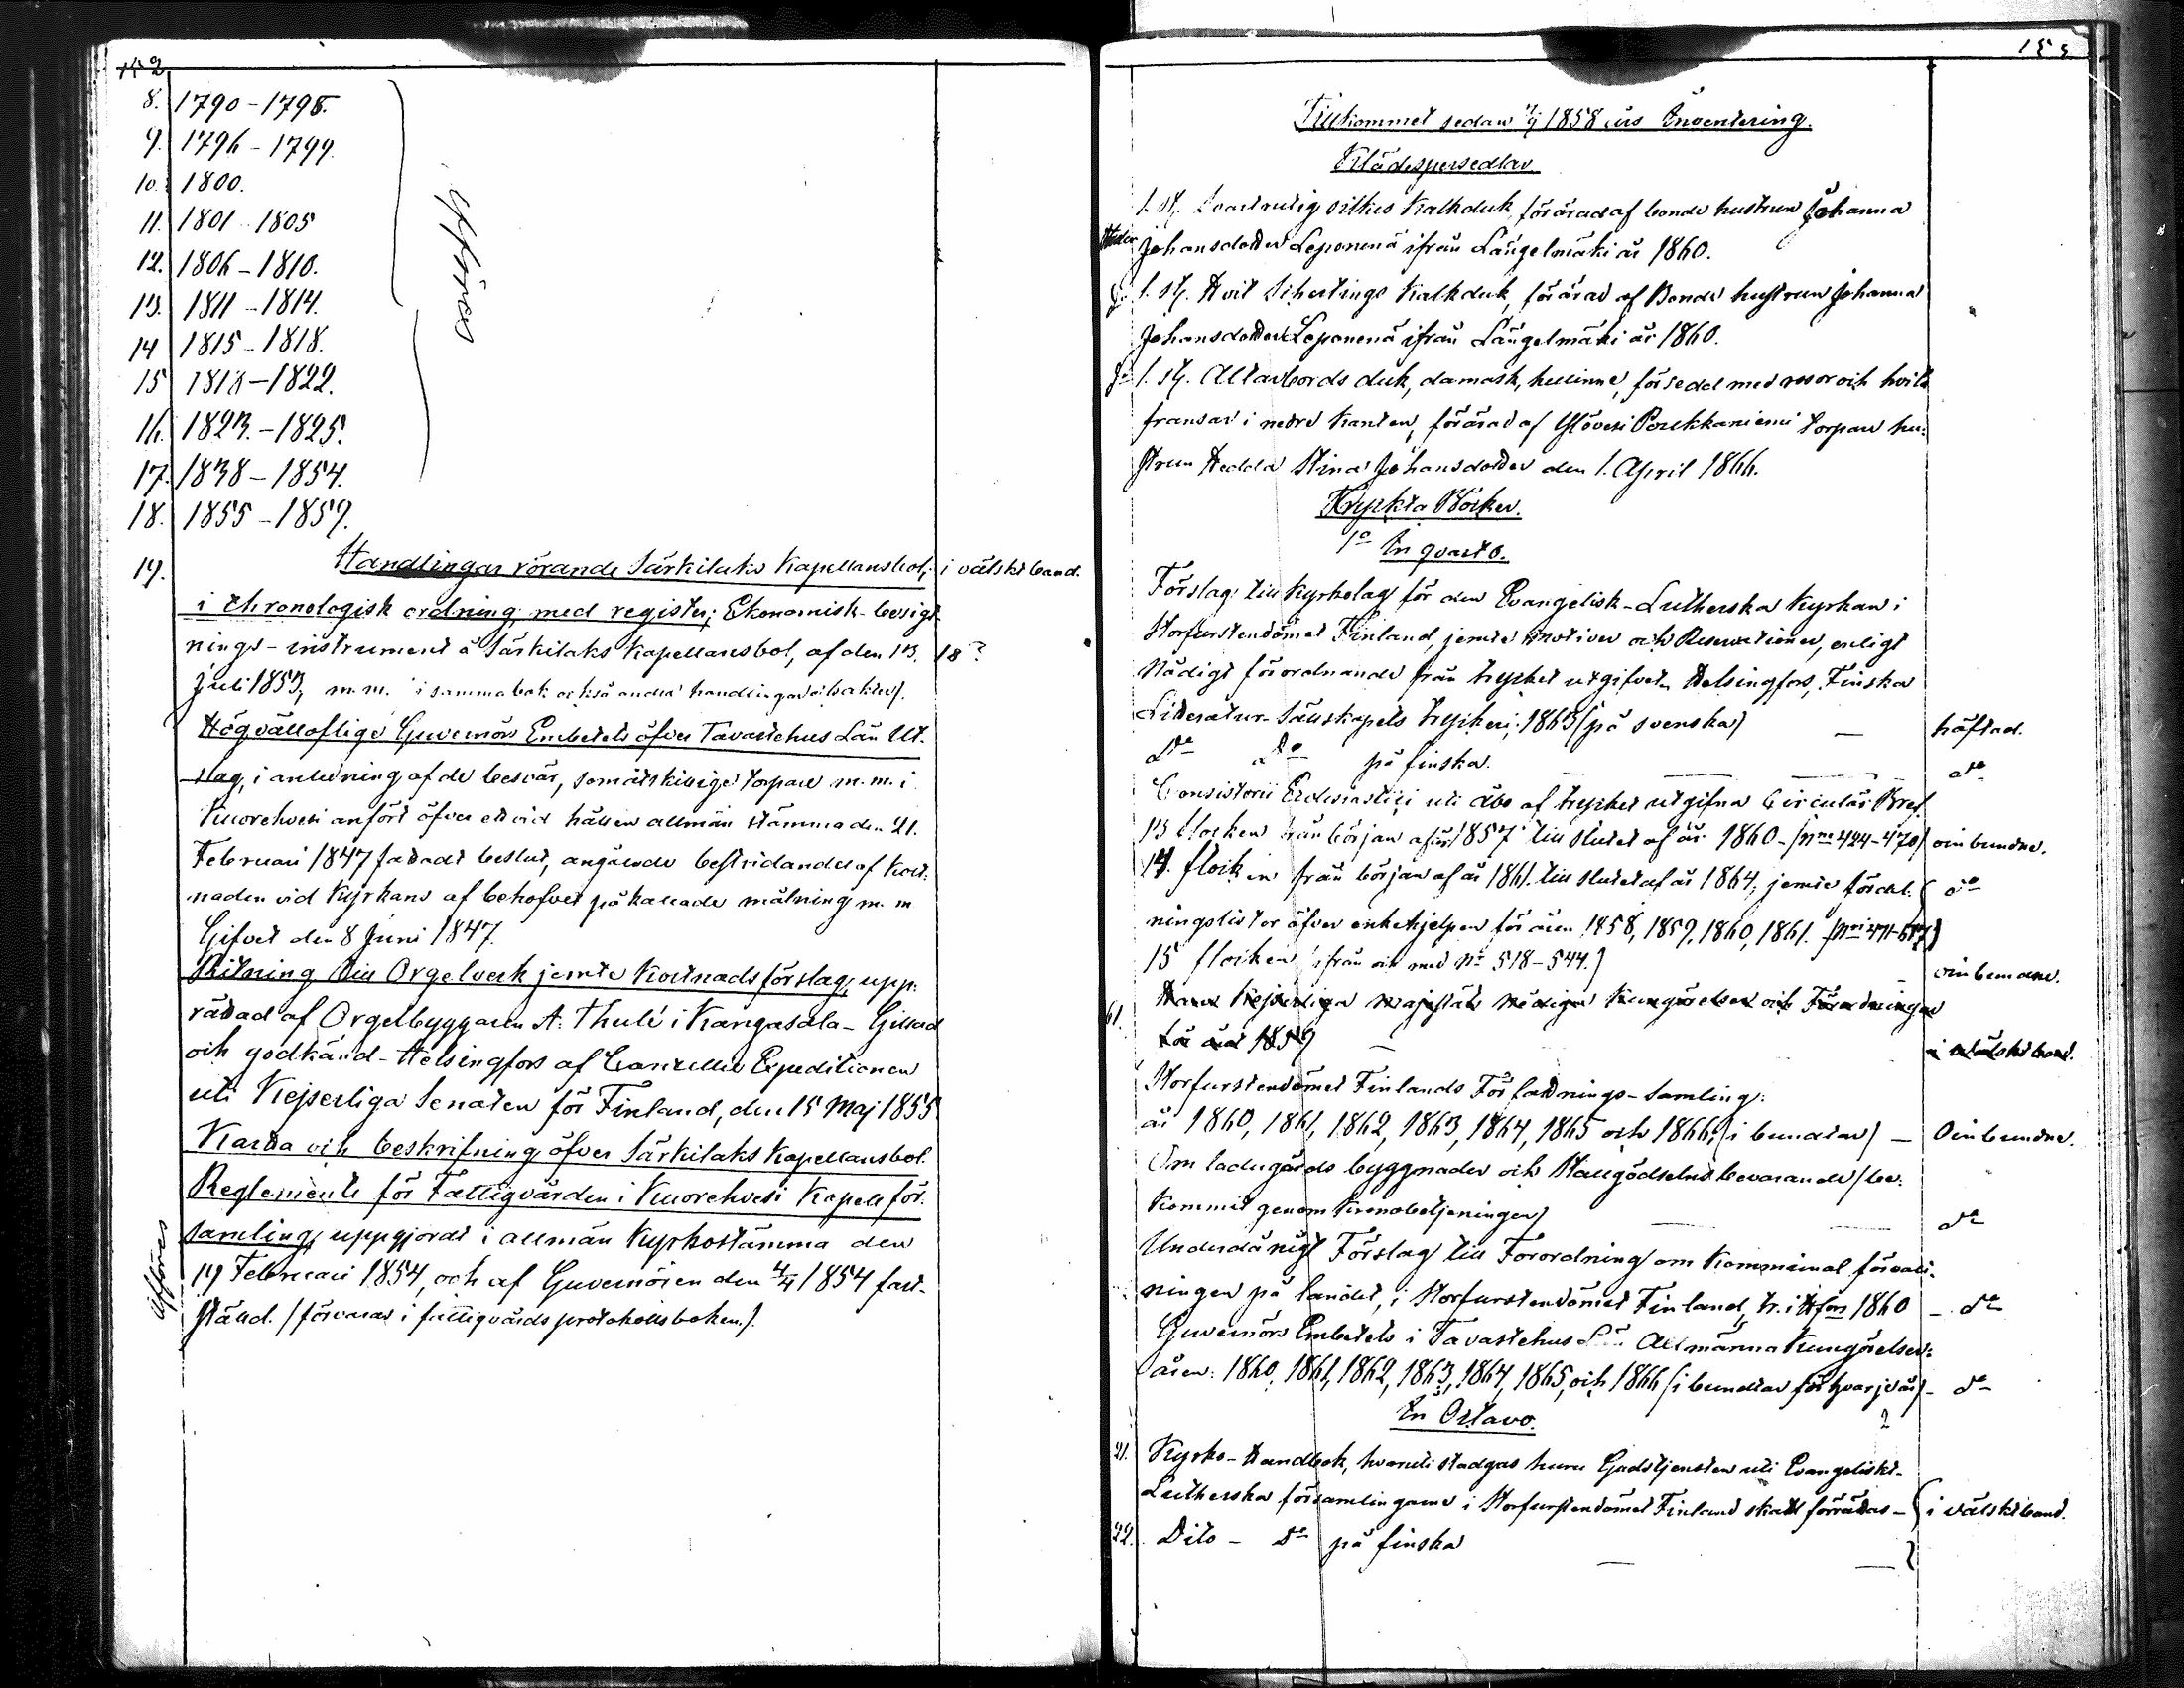 152
8. 1790-1795.
9. 1796-1799.
10. 1800.
11. 1801-1805
12. 1806-1810.
13. 1811-1814.
14 1815-1818.
15 1818-1822.
16. 1823.-1825.
17. 1838-1854.
18. 1855-1859.
Afföres
19. Handlingar rörande Särkilaks Kapellansbol, i välskt band.
i chronologisk ordning med register; Ekonomisk-besigt-
nings-instrument å Särkilaks Kapellansbol, af den 13. 18?
Juli 1853, m.m. i samma bok också andra handlingar
Högvälloflige Guvernörs Embetets öfver Tavastehus Län Ut-
slag, i anledning af de besvär, som åtskillige torpare m.m. i
Kuorehvesi anfört öfver ett vid hållen allmän stämma den 21.
Februari 1847 fattadt beslut, angående bestridandet af kost-
naden vid Kyrkans af behofvet påkallade målning m.m
Gifvet den 8 Juni 1847.
Ritning till Orgelverk jemte Kostnadsförslag, upp-
rättad af Orgelbyggaren A. Thulé i Kangasala - Gillad
och godkänd - Helsingfors af Canzellie Expeditionen
uti Kejserliga Senaten för Finland, den 15 Maj 1855
Karta och beskrifning öfver Särkilaks Kapellansbol.
Reglemente för Fattigvården i Kuorehvesi Kapellför-
samling, uppgjordt i allmän Kyrkostämma den
19 Februari 1854, och af Guvernören den 4/4 1854 fast-
ställd. (förvaras i fattigvårds protokollsboken.).
Afföres
153
Tillkommet sedan 1858 års Inventering.
Klädespersedlar.
1. st. Svartrutig silkes Kalkduk, förärad af bonde hustrun Johanna
Johansdotter Leponenä ifrån Längelmäki år 1860.
1. st. Hvit Schertings Kalkduk, förärad af Bonde hustrun Johanna
Johansdotter Leponenä ifrån Längelmäki år 1860.
1. st. Altarbords duk, damask, hellinne, försedd med rosor och hvita
fransar i nedre kanten, förärad af Ylövesi Poukkaniemi torpare hu-
strun Hedda Stina Johansdotter den 1. April 1866.
Tryckta Böcker.
1o In quarto.
Förslag till Kyrkolag för den Evangelisk-Lutherska Kyrkan i
Storfurstendömet Finland, jemte motiver och Reservationer, enligt
Nådigt förordnande från trycket utgifvet. Helsingfors, Finska
Literatur-Sällskapets tryckeri, 1863 (på svenska) — häftad.
do do på finska. — do
Consistorii Ecclesiastici uti Åbo af trycket utgifna Circulär Bref.
13 flocken från början af år 1857 till slutet af år 1860 - (No 424-470) oinbundne.
14. flocken från början af år 1861. till slutet af år 1864; jemte fördel- do
ningslistor öfver enkehjelpen för åren 1858, 1859, 1860, 1861. (No 471-517)
15 flocken (ifrån och med No 518-544.) oinbundne.
61. Hans Kejserliga Majestäts Nådiga Kungörelser och Förordningar
för året 1859 — i välskt band.
Storfurstendömet Finlands Författnings-Samling:
år 1860, 1861, 1862, 1863, 1864, 1865 och 1866; (i buntar) — Oinbundne.
Om ladugårds byggnader och Stallgödselns bevarande (be-
kommit genom Kronobetjeningen) — do
Underdånigt Förslag till Förordning om Kommunal förvalt-
ningen på landet, i Storfurstendömet Finland, tr. i Hfors 1860 — do
Guvernörs Embetets i Tavastehus Län Allmänna Kungörelser:
åren: 1860, 1861, 1862, 1863, 1864, 1865, och 1866 (i buntar för hvarje år) - do
In Octavo.
21. Kyrko-Handbok, hvaruti stadgas huru Gudstjensten uti Evangeliskt-
Lutherska församlingarne i Storfurstendömet Finland skall förrättas — i välskt band.
22. Dito - do på finska —